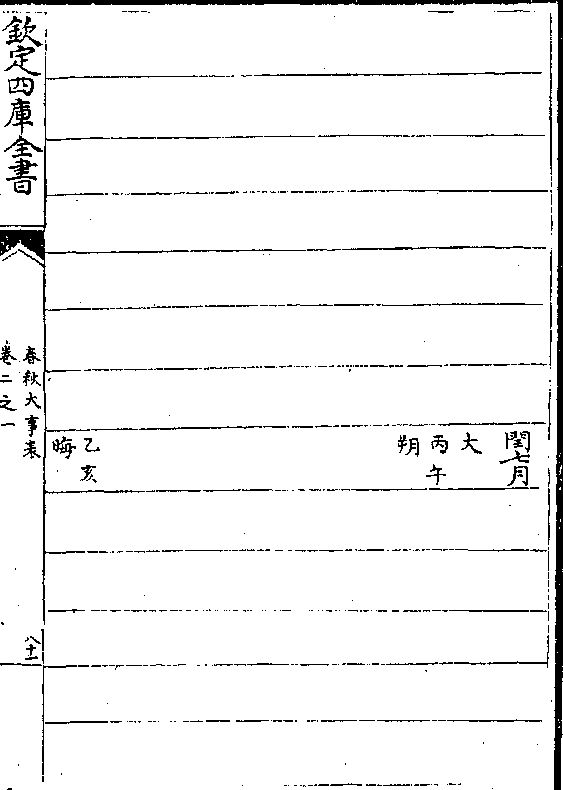 閏七月
大
丙午
朔
乙亥
晦
欽定四庫全書
春秋大事表
卷二之一
八十一